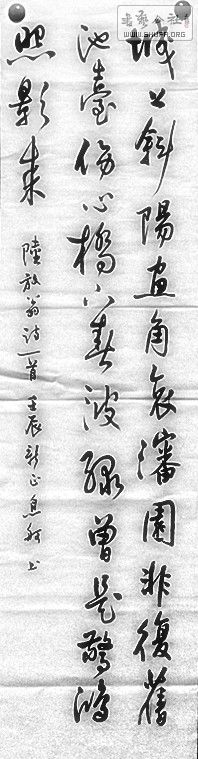 書藝公社
WWW.SHUFA.ORG
城上斜陽画角哀瀋園非復舊
池臺傷心橋下春波綠曾是驚鴻
照影来
陸放翁诗一首 壬辰新正 书